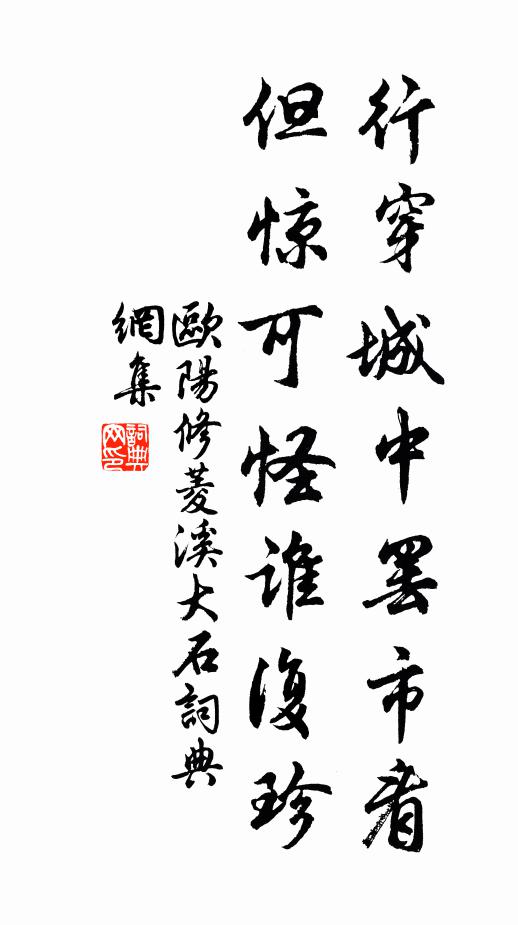 行穿城中罢市看
但惊可怪谁復珍
歐陽修菱溪大石詞典
網集
詞典网印